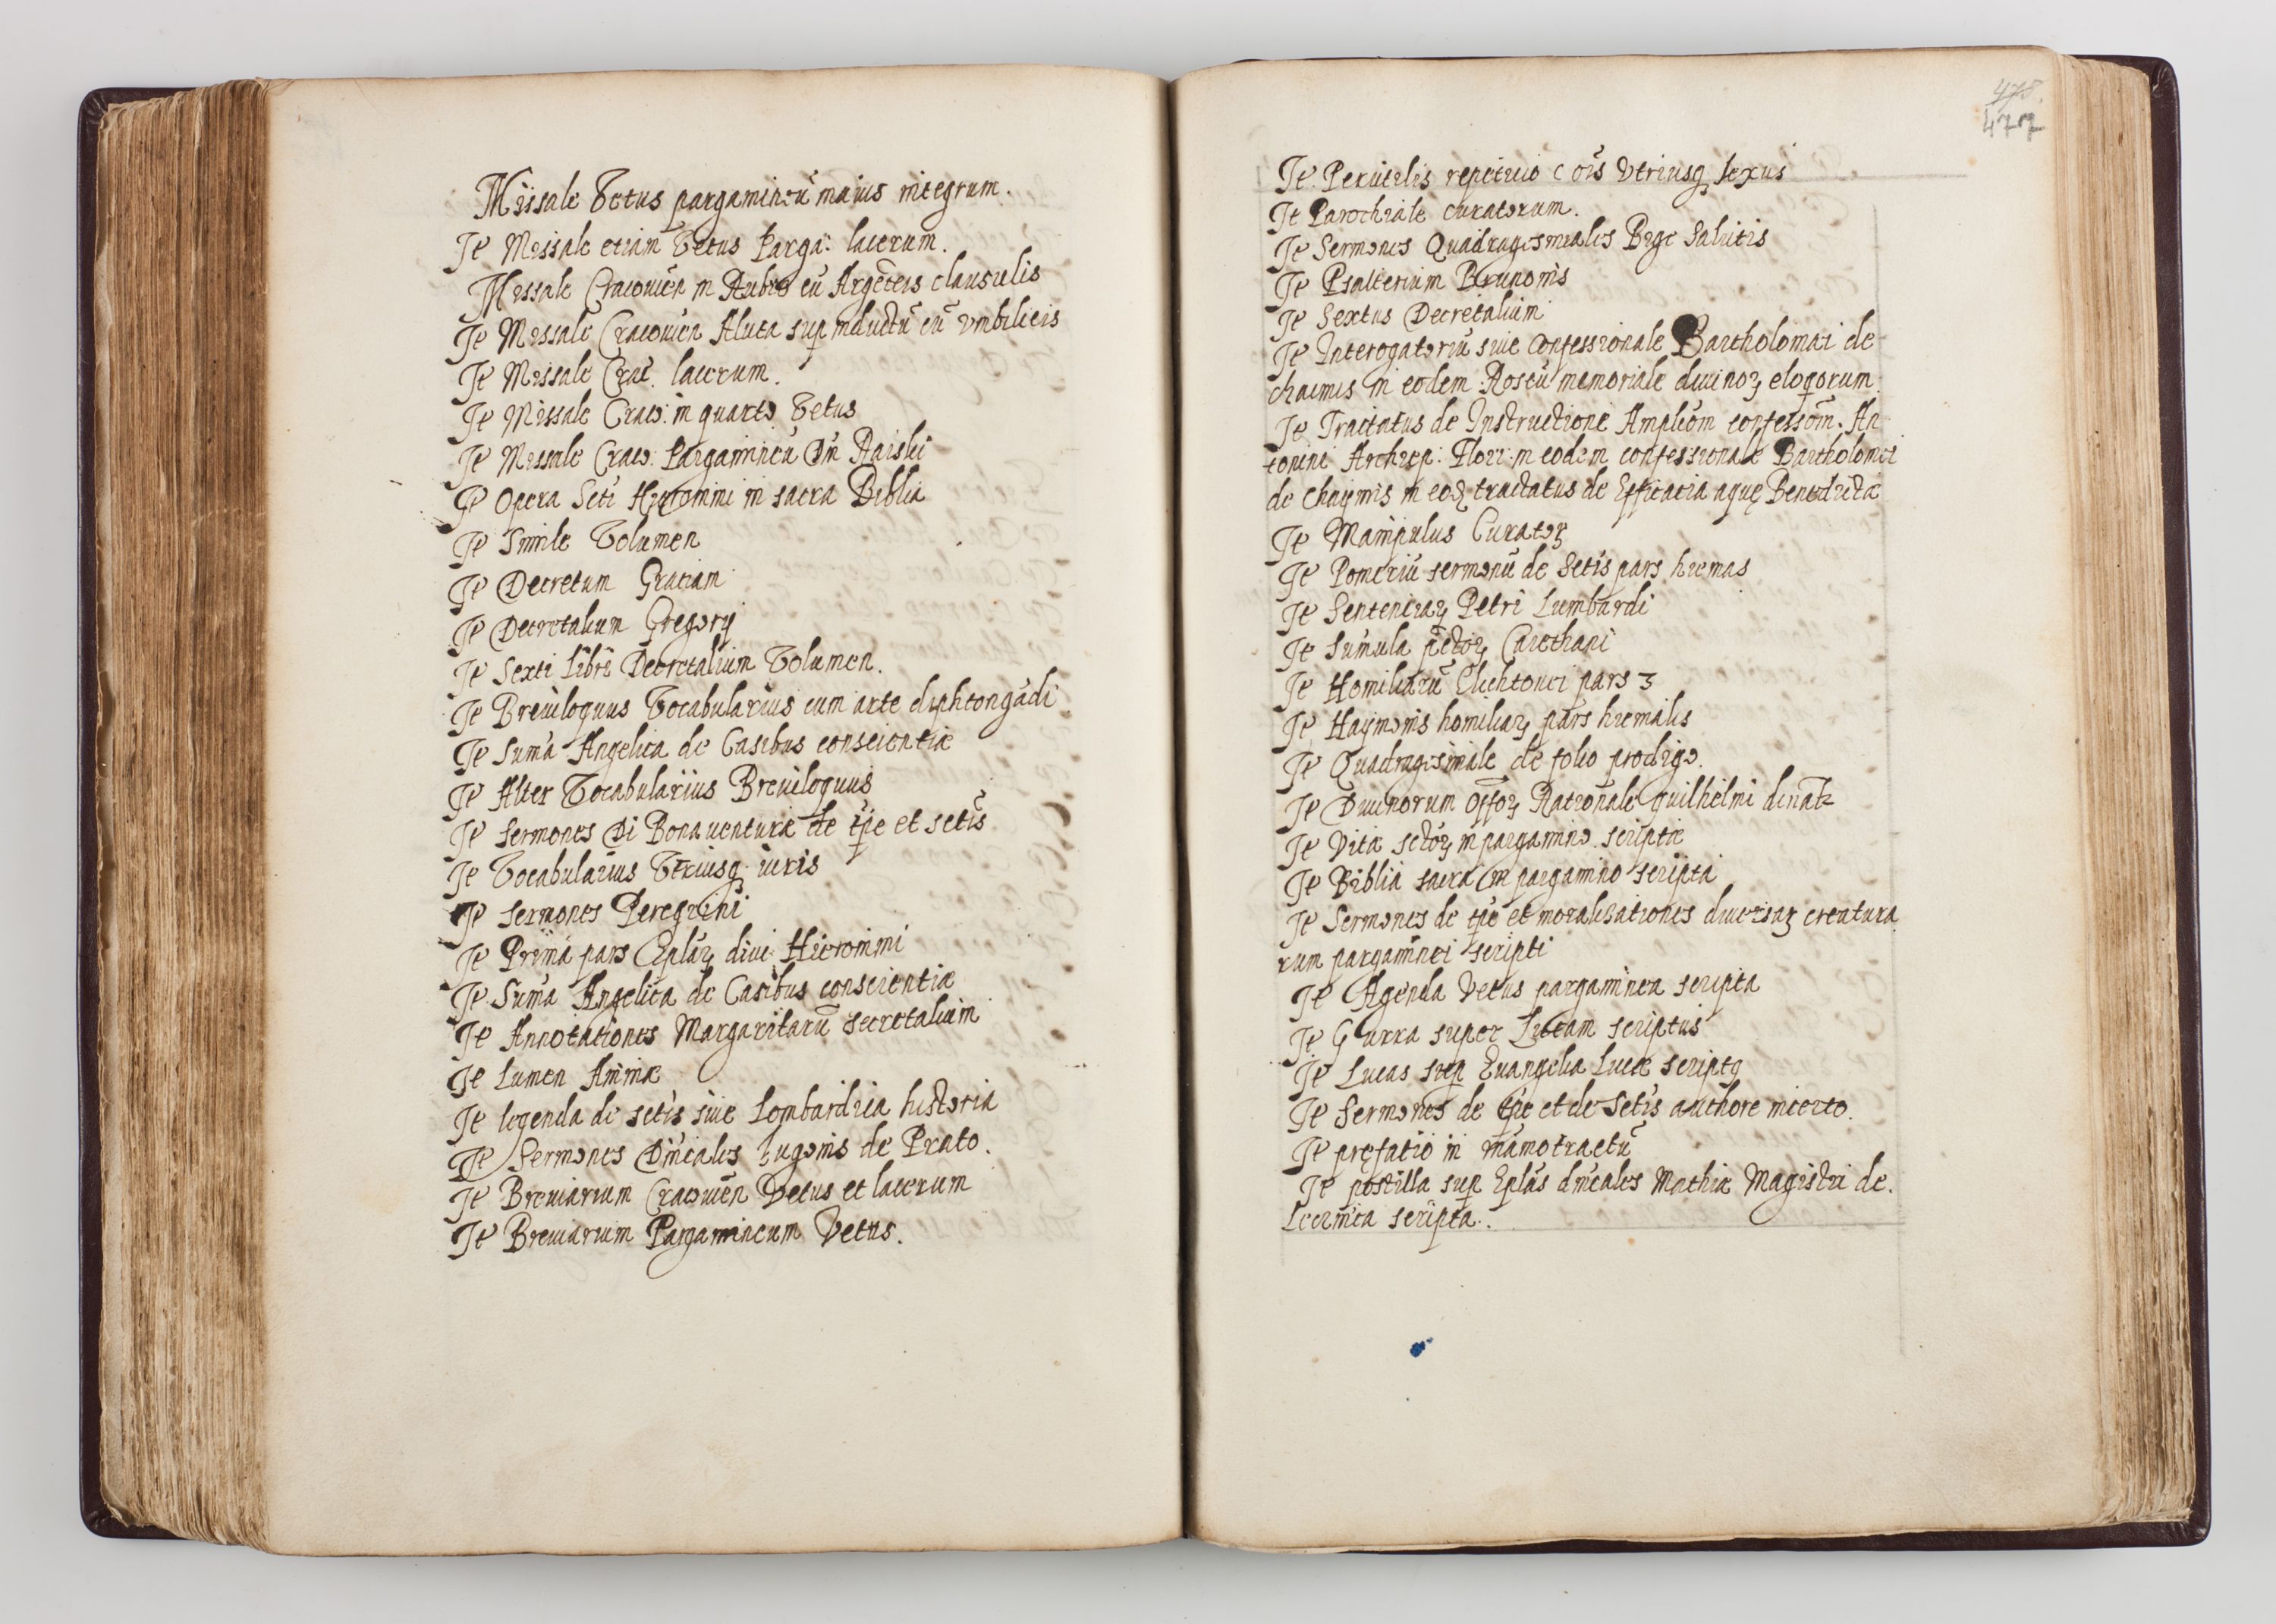 Missale Vetus pargamineū maius integrum.
Itē Missale etiam Vetus Parga: lacerum.
Missale Cracouień in Rubro cū Argēteis clausulis
Itē Missale Cracouień Aluta sup inductū cū vmbilicis
Itē Missale Crac. lacerum.
Itē Missale Crac: in quarto Vetus
Itē Missale Crac: Pargamineū Dni Raiski
Itē Opera Scti Hieronimi in sacra Biblia
Itē Simile Volumen
Itē Decretum Gratiani
Itē Decretalium Gregorij
Itē Sexti Libri Decretalium Volumen.
Itē Breuiloquus Vocabularius cum arte diphtongādi
Itē Suma Angelica de Casibus conscientiæ
Itē Alter Vocabularius Breuiloquus
Itē Sermones Di Bonauenturæ de tpe et sctis
Itē Vocabularius Vtriusq iuris
Itē Sermones Peregrini
Itē Prima pars Eplarꝝ diui Hieronimi
Itē Suma Angelica de Casibus conscientiæ
Itē Annotationes Margaritarū decretalium
Itē Lumen Animæ
Itē legenda de sctis siue Lombardica historia
Itē Sermones Dnicales hugonis de Prato.
Itē Breuiarium Cracouień Vetus et lacerum
Itē Breuiarium Pargamineum Vetus.
478.
477
Itē Perutilis repetitio C oīs Vtriusq sexus
Itē Parochiale curatorum.
Itē Sermones Quadragesimales Bige Salutis
Itē Psalterium Brunonis
Itē Sextus Decretalium
Itē Interogatoriū siue confessionale Bartholomæi de
chaimis in eodem Roseū memoriale diuinoꝝ eloqorum
Itē Tractatus de Instructione simpliciom confessoṁ. An
tonini Archiep: Flori: in eodem confessionale Bartholomei
de Chaymis in eodꝫ tractatus de Efficatia aquę Benedictæ
Itē Manipulus Curatoꝝ
Itē Pomeriū sermonū de Sctis pars hiemas
Itē Sentenciaꝝ Petri Lumbardi
Itē Sumula pctoꝝ Caiethani
Itē Homiliarū Clichtouei pars 3
Itē Haymonis homiliaꝝ pars hiemalis
Itē Quadragesimale de folio prodigo.
Itē Diuinorum offoꝝ Rationale guilhelmi
Itē Vitæ sctoꝝ in pargamino scriptæ
Itē Biblia sacra in pargamino scripta
Itē Sermones de tpe et moralisationes diuersaꝝ creatura
rum pargaminei scripti
Itē Agenda Vetus pargaminea scripta
Itē Gurra super Lucam scriptus
Itē Lucas sup Euangelia Lucæ scriptq
Itē Sermones de tpe et de Sctis authore incerto.
Itē prefatio in māmotractū
Itē postilla sup Eplas dnicales Mathiæ Magistri de.
scripta.